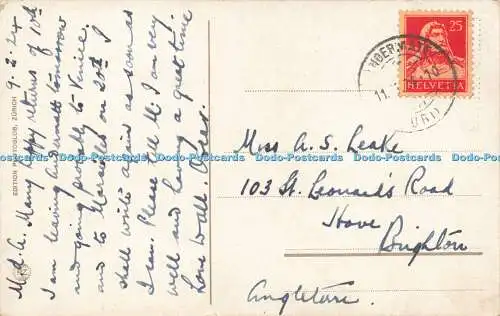 9.2.24
M.d.A. Many happy returns of 10th
I am leaving Andermatt tomorrow
and going probably to Venice
and to Marseilles on 20th I
shall write again as soon as
I can. Please tell M I am very
well and having a great time
Love to all.
EDITION PHOTOGLOB, ZÜRICH
ANDERMATT
11.
(URI)
25
HELVETIA
Miss A. S. Leake
103 St. Leonard's Road
Hove
Brighton
Angleterre.
Postcards www.Dodo-Postcards.com Dodo-Postcards www.Dodo-Postcards.com Dodo-Postcards www.Dodo-Postcards.com